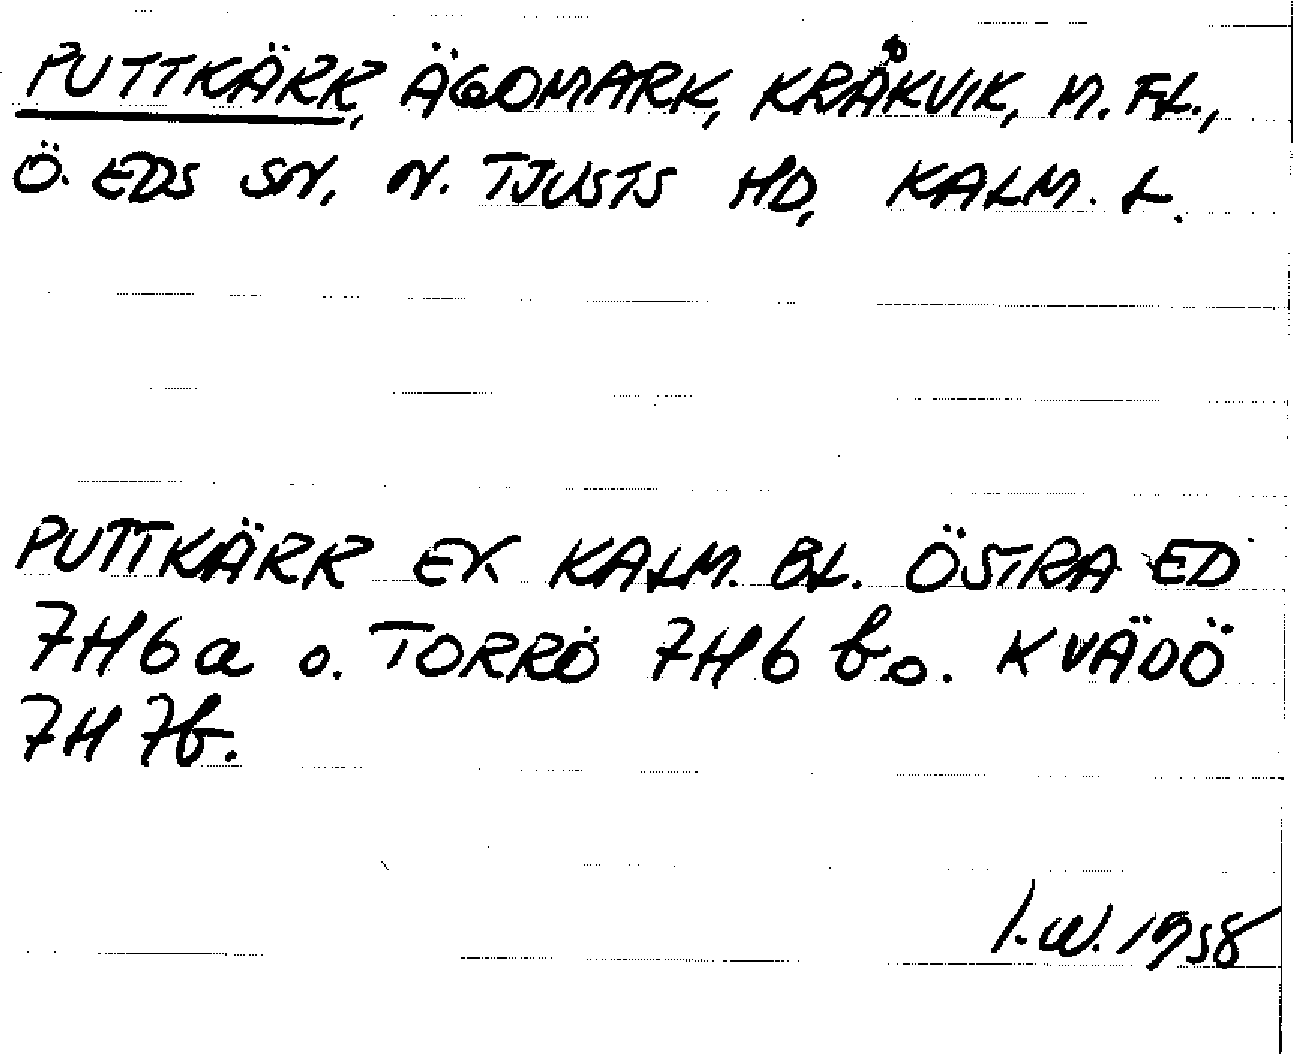 PUTTKÄRR, ÄGOMARK, KRÅKVIK, M. FL.,
Ö. EDS SN, N. TJUSTS HD, KALM. L.
PUTTKÄRR EK KALM. BL. ÖSTRA ED
7H6a o. TORRÖ 7H6b o. KVÄDÖ
7H7b.
I.W. 1958